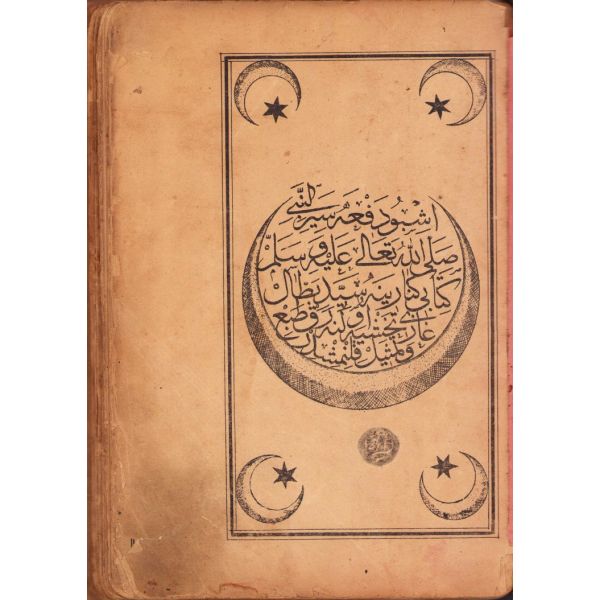 اشبو دفعه سير النبى
صلى الله تعالى عليه وسلم
كتابى كنارينه سيد بطال
غازى تحشيه اولنه رق طبع
وتمثيل قلنمشدر